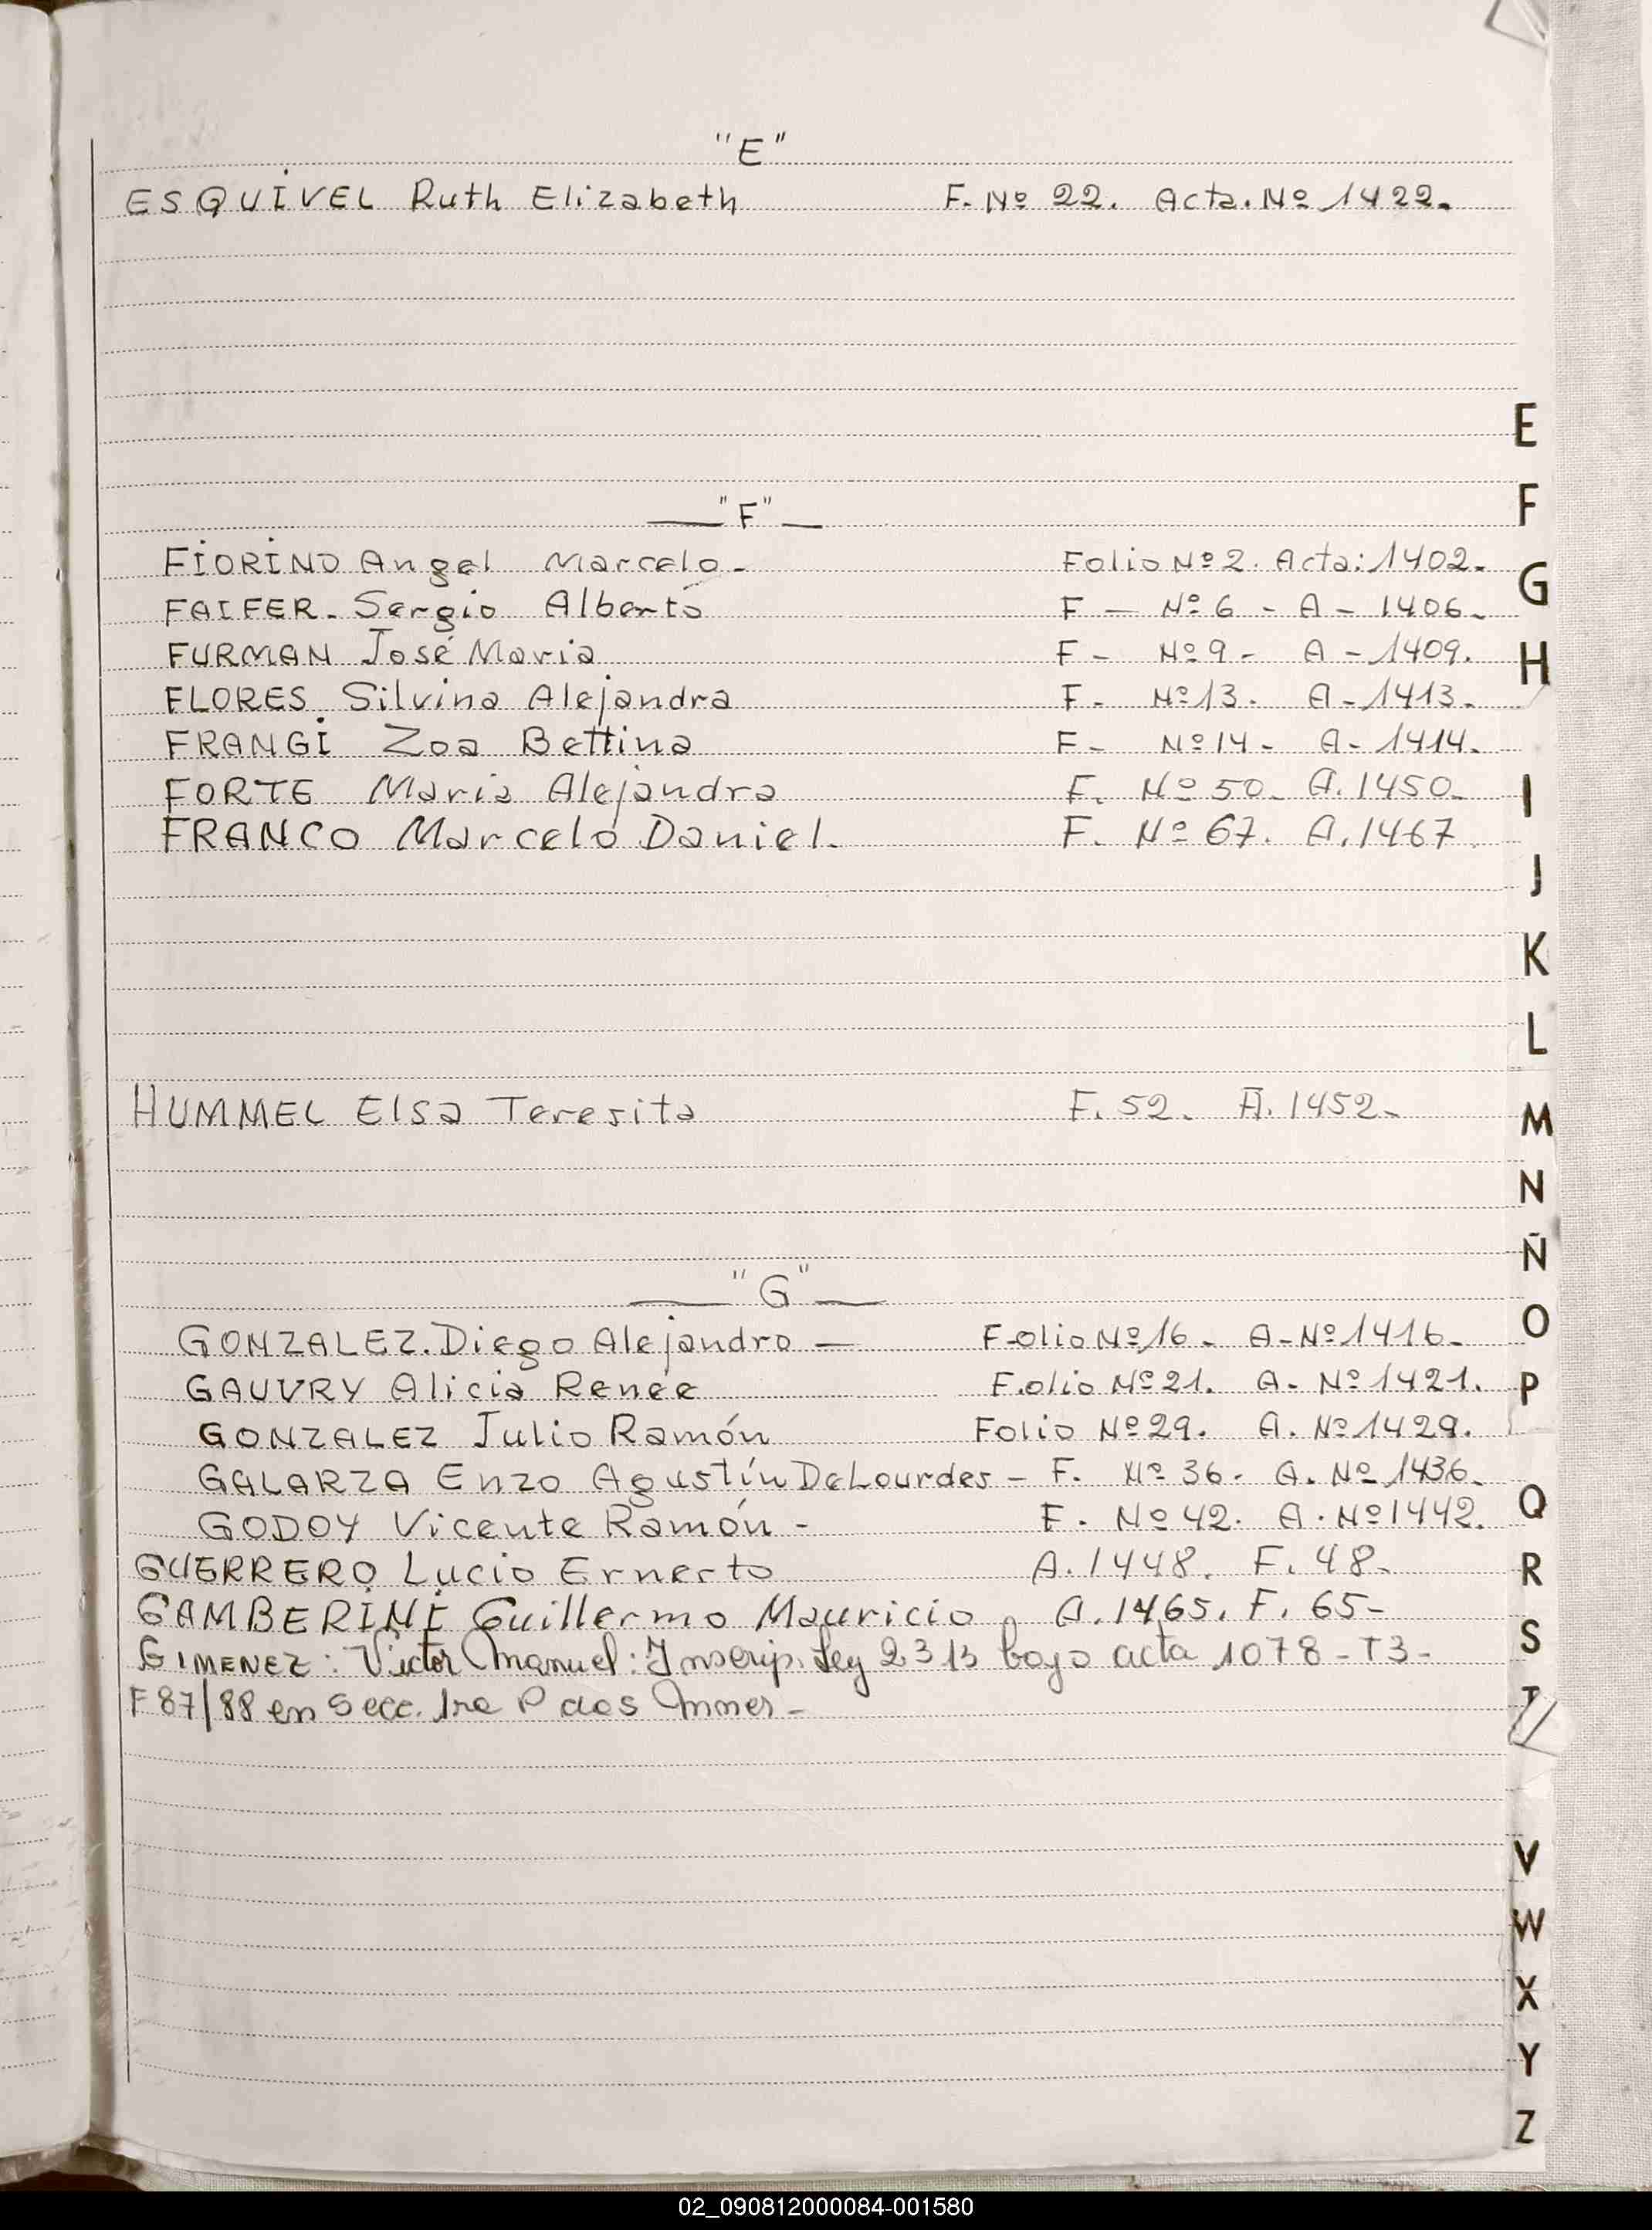 "E"
ESQUIVEL Ruth Elizabeth F. Nº 22. Acta. Nº 1422.
"F"
FIORINO Angel Marcelo. Folio Nº 2. Acta: 1402.
FAIFER. Sergio Alberto F - Nº 6 - A - 1406.
FURMAN José Maria F - Nº 9 - A - 1409.
FLORES Silvina Alejandra F - Nº 13. A - 1413.
FRANGI Zoa Bettina F - Nº 14 - A - 1414.
FORTE Maria Alejandra F. Nº 50. A. 1450.
FRANCO Marcelo Daniel. F. Nº 67. A. 1467
HUMMEL Elsa Teresita F. 52. A. 1452.
"G"
GONZALEZ. Diego Alejandro - Folio Nº 16. A-Nº 1416.
GAUVRY Alicia Renée Folio Nº 21. A. Nº 1421.
GONZALEZ Julio Ramón Folio Nº 29. A. Nº 1429.
GALARZA Enzo Agustín De Lourdes - F. Nº 36. A. Nº 1436.
GODOY Vicente Ramón - F. Nº 42. A. Nº 1442.
GUERRERO Lucio Ernesto A. 1448. F. 48.
GAMBERINI Guillermo Mauricio A. 1465. F. 65-
GIMENEZ: Victor Manuel: Inscrip. Ley 2313 bajo acta 1078 - T3 -
F 87/88 en Secc. 1ra P dos
E
F
G
H
I
J
K
L
M
N
Ñ
O
P
Q
R
S
T
V
W
X
Y
Z
02_090812000084-001580